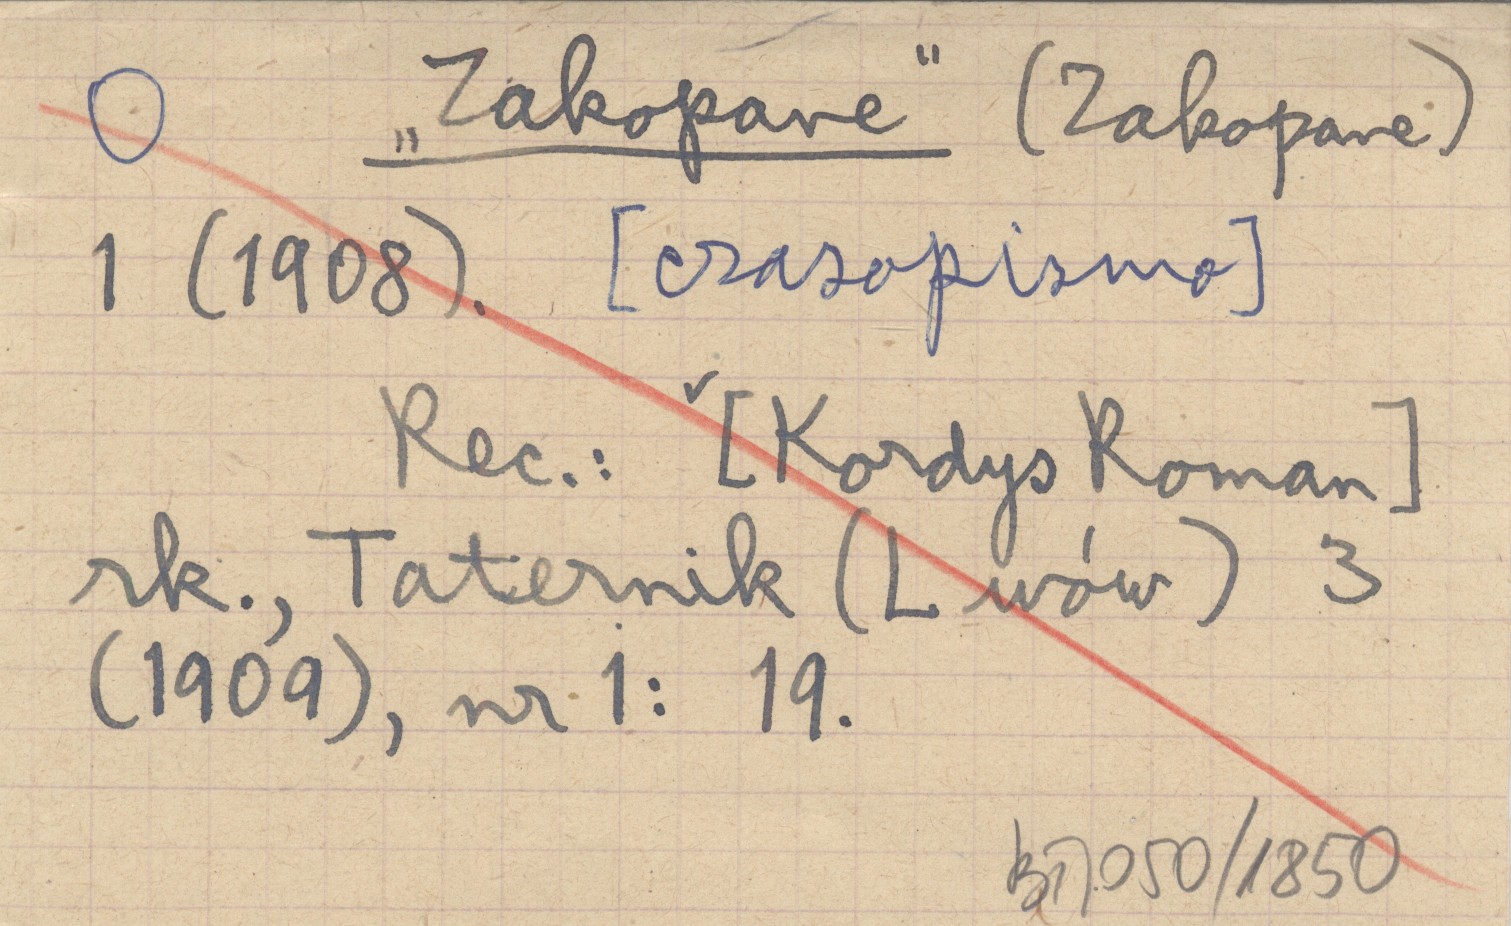 „Zakopane" (Zakopane)
1 (1908). [czasopismo]
Rec.: [Kordys Roman]
rk., Taternik (Lwów) 3
(1909), nr 1: 19.
050/1850